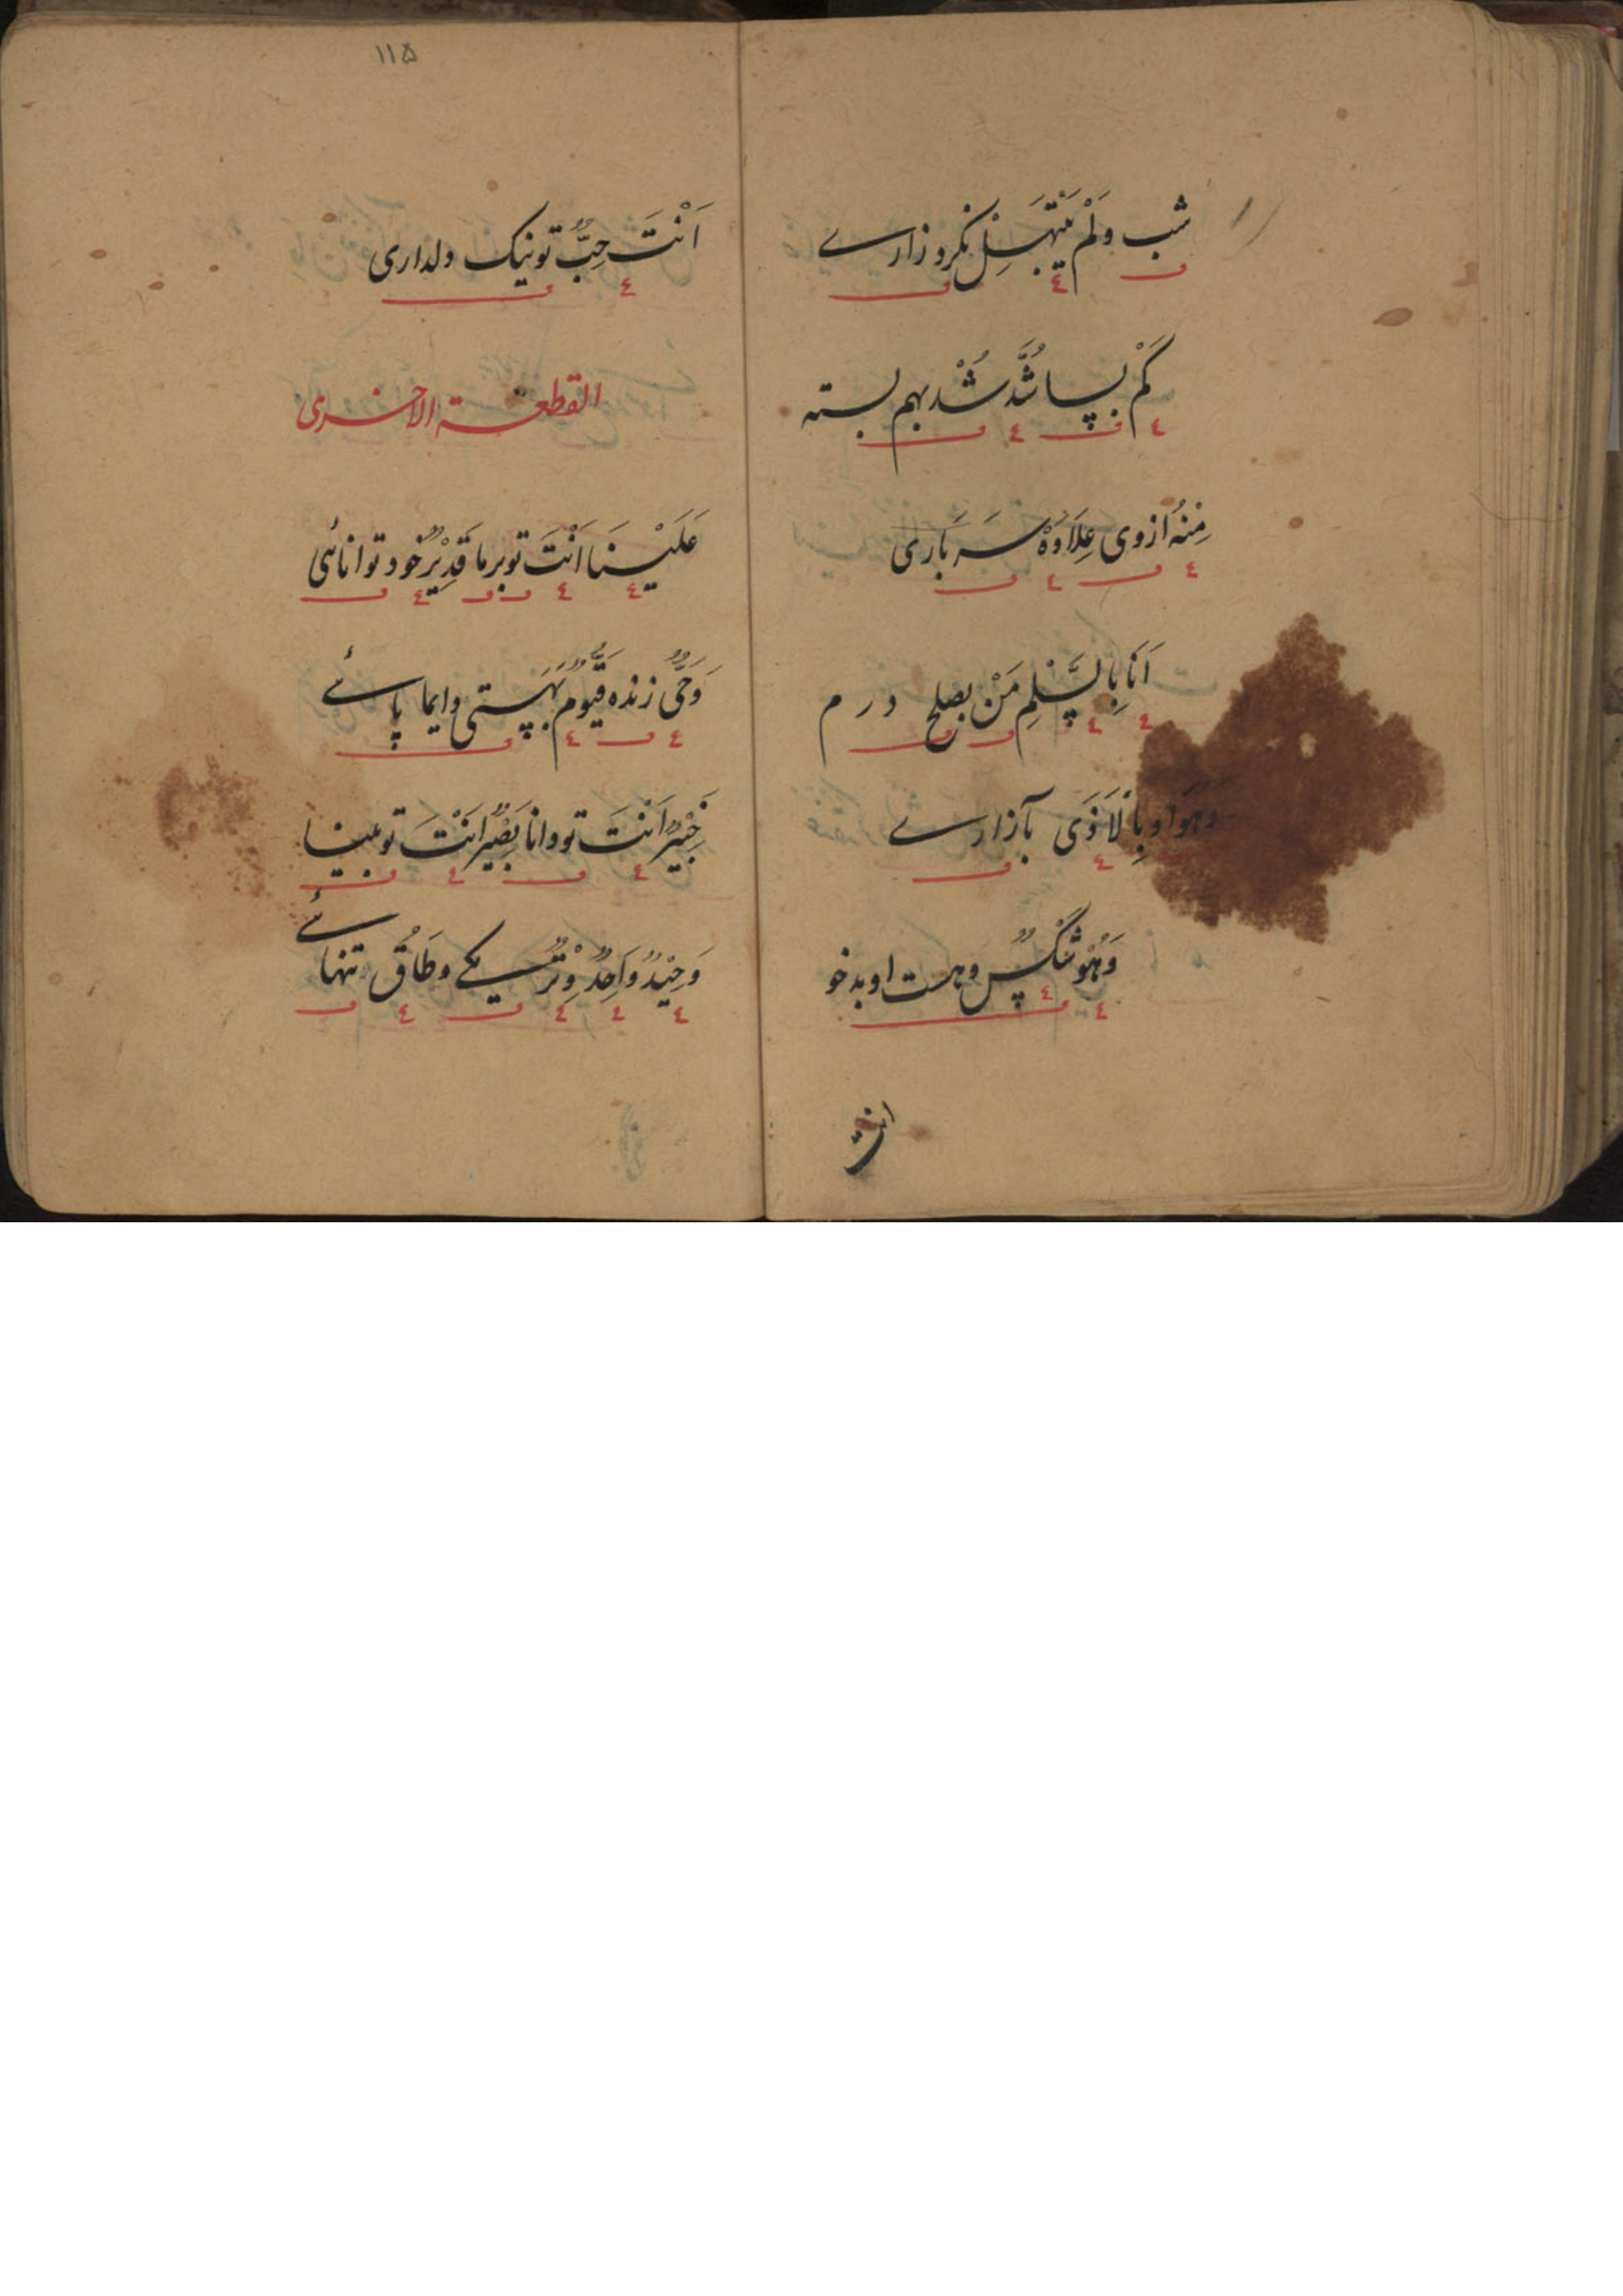 شب وَلَمْ يَبْتَهِلْ نکرد زارے
کَمْ بسا شُدَّ شُدْ بهم بسته
مِنْهُ ازوی عِلَاوَهْ سَر بَاری
اَنَا بِالسِّلْمِ مَنْ بصلح درم
وَهُوَ او بِالْاَذَی بآزارے
وَهُوَ شَکْسٌ وهست او بدخو
انت
۱۱۵
اَنْتَ حِبٌّ تو نیک دلداری
القطعة الاخری
عَلَیْنَا اَنْتَ تو بر ما قَدِیْرٌ خود توانائی
وَحَیٌّ زنده قَیُّومٌ بهستی دایما پائے
خَبِیْرٌ اَنْتَ تو دانا بَصِیْرٌ اَنْتَ تو بینا
وَحِیْدٌ وَاحِدٌ وِتْرٌ یکے وطَاق تنهائے